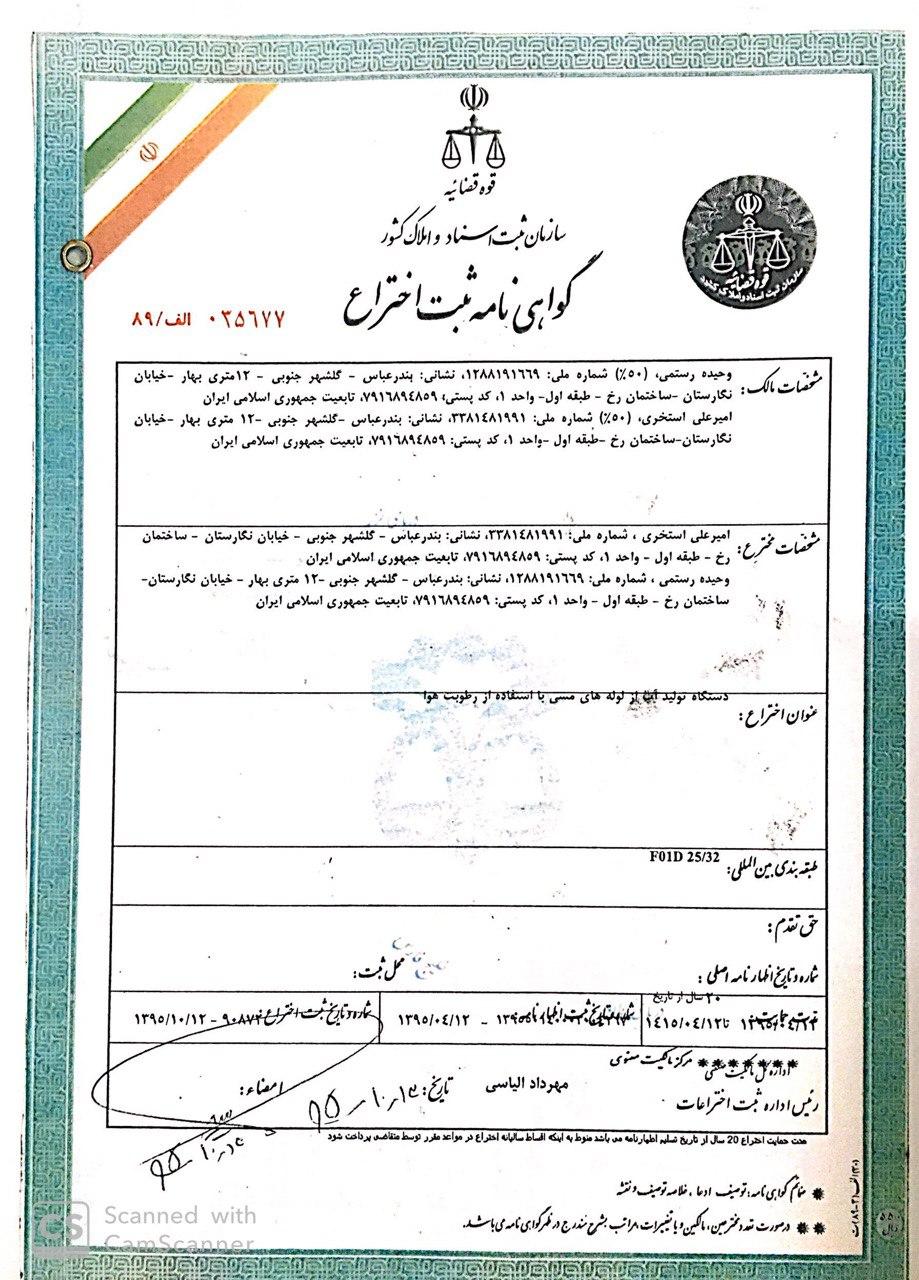 قوه قضائیه
سازمان ثبت اسناد و املاک کشور
گواهی نامه ثبت اختراع
۰۳۵۶۷۷ الف/۸۹
قوه قضائیه
سازمان ثبت اسناد و املاک کشور
مشخصات مالک:
وحیده رستمی، (۵۰٪) شماره ملی: ۱۲۸۸۱۹۱۶۶۹، نشانی: بندرعباس - گلشهر جنوبی - ۱۲متری بهار -خیابان
نگارستان -ساختمان رخ - طبقه اول- واحد ۱، کد پستی: ۷۹۱۶۸۹٤۸۵۹، تابعیت جمهوری اسلامی ایران
امیرعلی استخری، (۵۰٪) شماره ملی: ۳۳۸۱٤۸۱۹۹۱، نشانی: بندرعباس -گلشهر جنوبی -۱۲ متری بهار -خیابان
نگارستان-ساختمان رخ -طبقه اول -واحد ۱، کد پستی: ۷۹۱۶۸۹٤۸۵۹، تابعیت جمهوری اسلامی ایران
مشخصات مخترع:
امیرعلی استخری ، شماره ملی: ۳۳۸۱٤۸۱۹۹۱، نشانی: بندرعباس - گلشهر جنوبی - خیابان نگارستان - ساختمان
رخ - طبقه اول - واحد ۱، کد پستی: ۷۹۱۶۸۹٤۸۵۹، تابعیت جمهوری اسلامی ایران
وحیده رستمی ، شماره ملی: ۱۲۸۸۱۹۱۶۶۹، نشانی: بندرعباس - گلشهر جنوبی -۱۲ متری بهار - خیابان نگارستان-
ساختمان رخ - طبقه اول - واحد ۱، کد پستی: ۷۹۱۶۸۹٤۸۵۹، تابعیت جمهوری اسلامی ایران
دستگاه تولید آب از لوله های مسی با استفاده از رطوبت هوا
عنوان اختراع:
F01D 25/32
طبقه بندی بین المللی:
حق تقدم:
شماره و تاریخ اظهارنامه اصلی:
محل ثبت:
۲۰ سال از تاریخ
مدت حمایت: تا ۱٤۱۵/۰٤/۱۲
شماره و تاریخ ثبت اظهارنامه: - ۱۳۹۵/۰٤/۱۲
شماره و تاریخ ثبت اختراع: - ۱۳۹۵/۱۰/۱۲
مرکز مالکیت معنوی
اداره کل مالکیت صنعتی
رئیس اداره ثبت اختراعات
مهرداد الیاسی
تاریخ:
امضاء:
مدت حمایت اختراع 20 سال از تاریخ تسلیم اظهارنامه می باشد منوط به اینکه اقساط سالیانه اختراع در مواعد مقرر توسط متقاضی پرداخت شود
* ضمائم گواهی نامه: توصیف، ادعا ، خلاصه توصیف و نقشه
* * درصورت تعدد مخترعین، مالکین و یا تغییرات، مراتب بشرح مندرج در ظهر گواهی نامه می باشد.
CS Scanned with
CamScanner